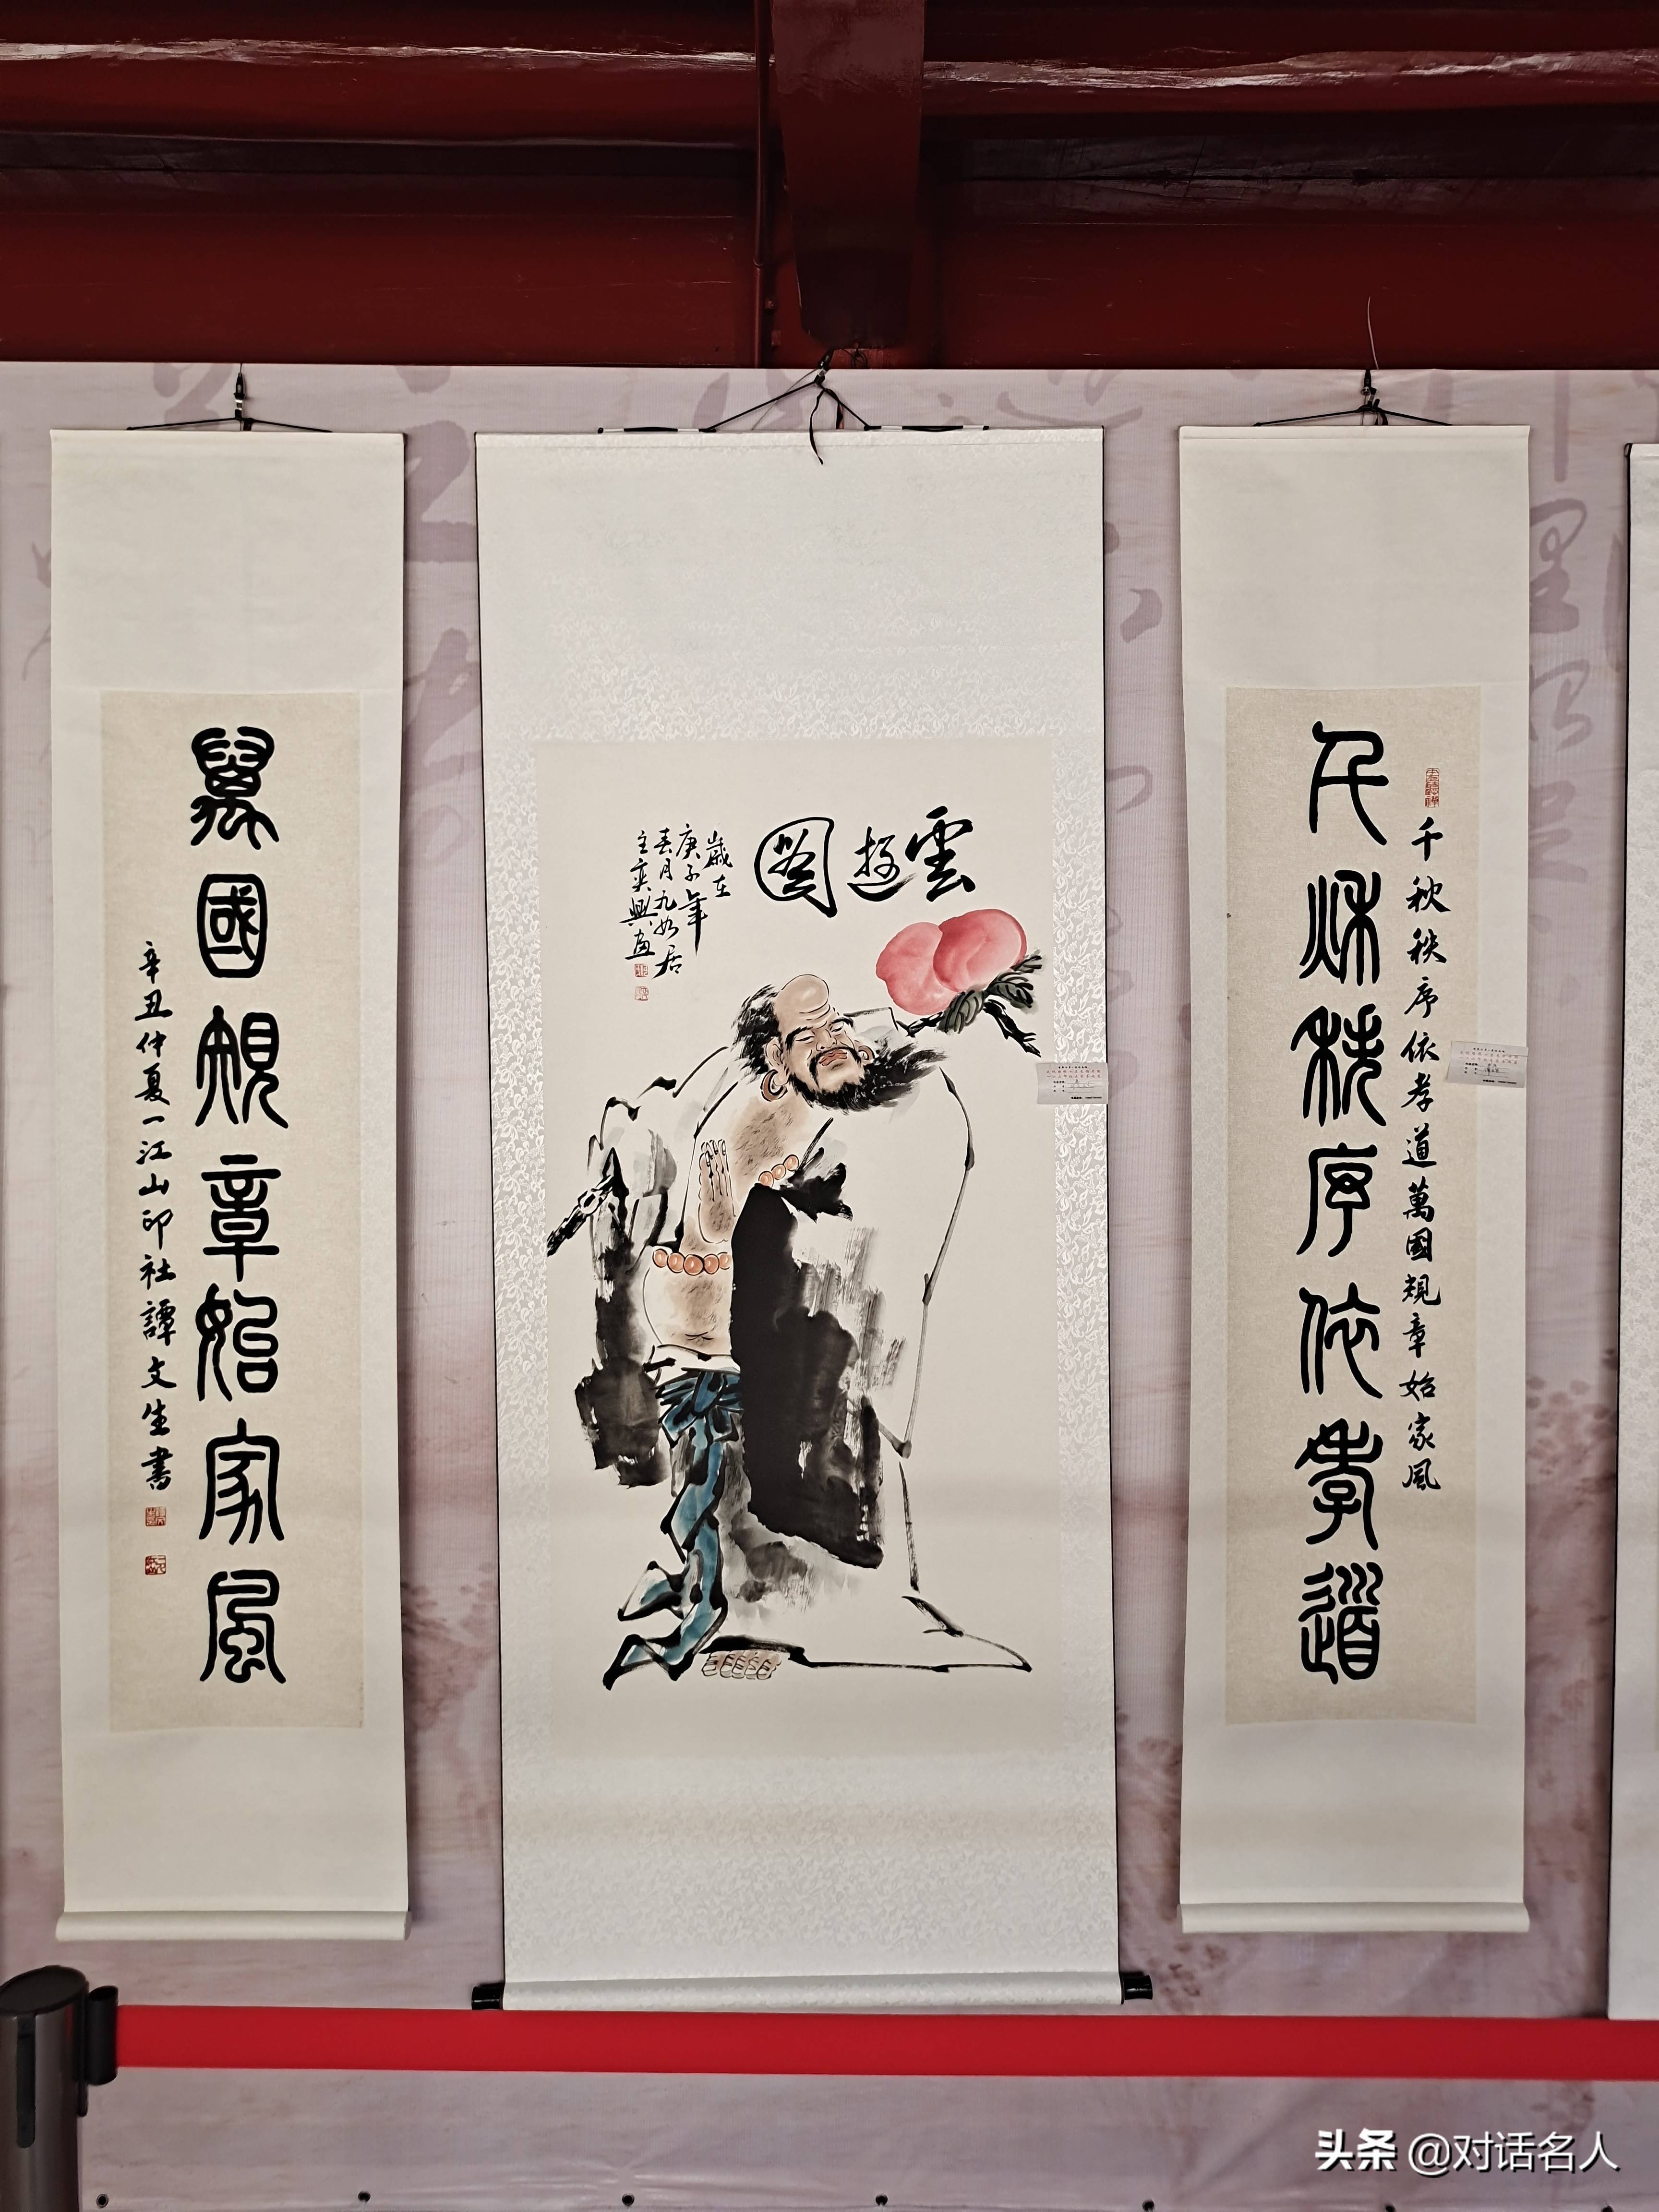 千秋秩序依孝道
千秋秩序依孝道萬國規章始家風
雲遊圖
歲在
庚子年
春月九如居
主奕興畫
萬國規章始家風
辛丑仲夏一江山印社譚文生書
头条 @对话名人